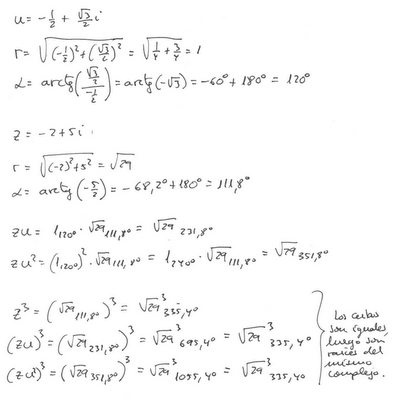 u = -1/2 + √3/2 i
r = √((-1/2)² + (√3/2)²) = √(1/4 + 3/4) = 1
α = arctg((√3/2)/(-1/2)) = arctg(-√3) = -60° + 180° = 120°
z = -2+5i
r = √((-2)²+5²) = √29
α = arctg(-5/2) = -68,2° + 180° = 111,8°
zu = 1₁₂₀° · √29 ₁₁₁,₈° = √29 ₂₃₁,₈°
zu² = (1₁₂₀°)² · √29 ₁₁₁,₈° = 1₂₄₀° · √29 ₁₁₁,₈° = √29 ₃₅₁,₈°
z³ = (√29 ₁₁₁,₈°)³ = √29³ ₃₃₅,₄°
(zu)³ = (√29 ₂₃₁,₈°)³ = √29³ ₆₉₅,₄° = √29³ ₃₃₅,₄°
(zu²)³ = (√29 ₃₅₁,₈°)³ = √29³ ₁₀₅₅,₄° = √29³ ₃₃₅,₄°
Los cubos
son iguales
luego son
raíces del
mismo
complejo.